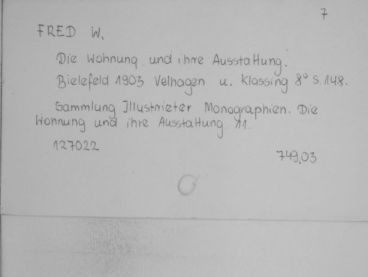 7
FRED W.
Die Wohnung und ihre Ausstattung.
Bielefeld 1903 Velhagen u. Klassing 8° S. 148.
Sammlung Illustrieter Monographien. Die
Wohnung und ihre Ausstattung 11.
127022
749,03